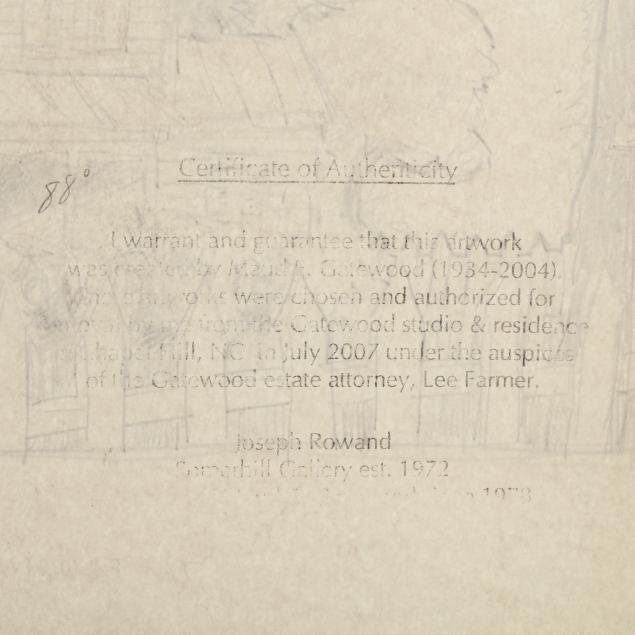 Certificate of Authenticity
88°
I warrant and guarantee that this artwork
was created by Maud F. Gatewood (1934-2004).
were chosen and authorized for
removal by me from the Gatewood studio & residence
Chapel Hill, NC in July 2007 under the auspices
of the Gatewood estate attorney, Lee Farmer.
Joseph Rowand
Somerhill Gallery est. 1972
1978